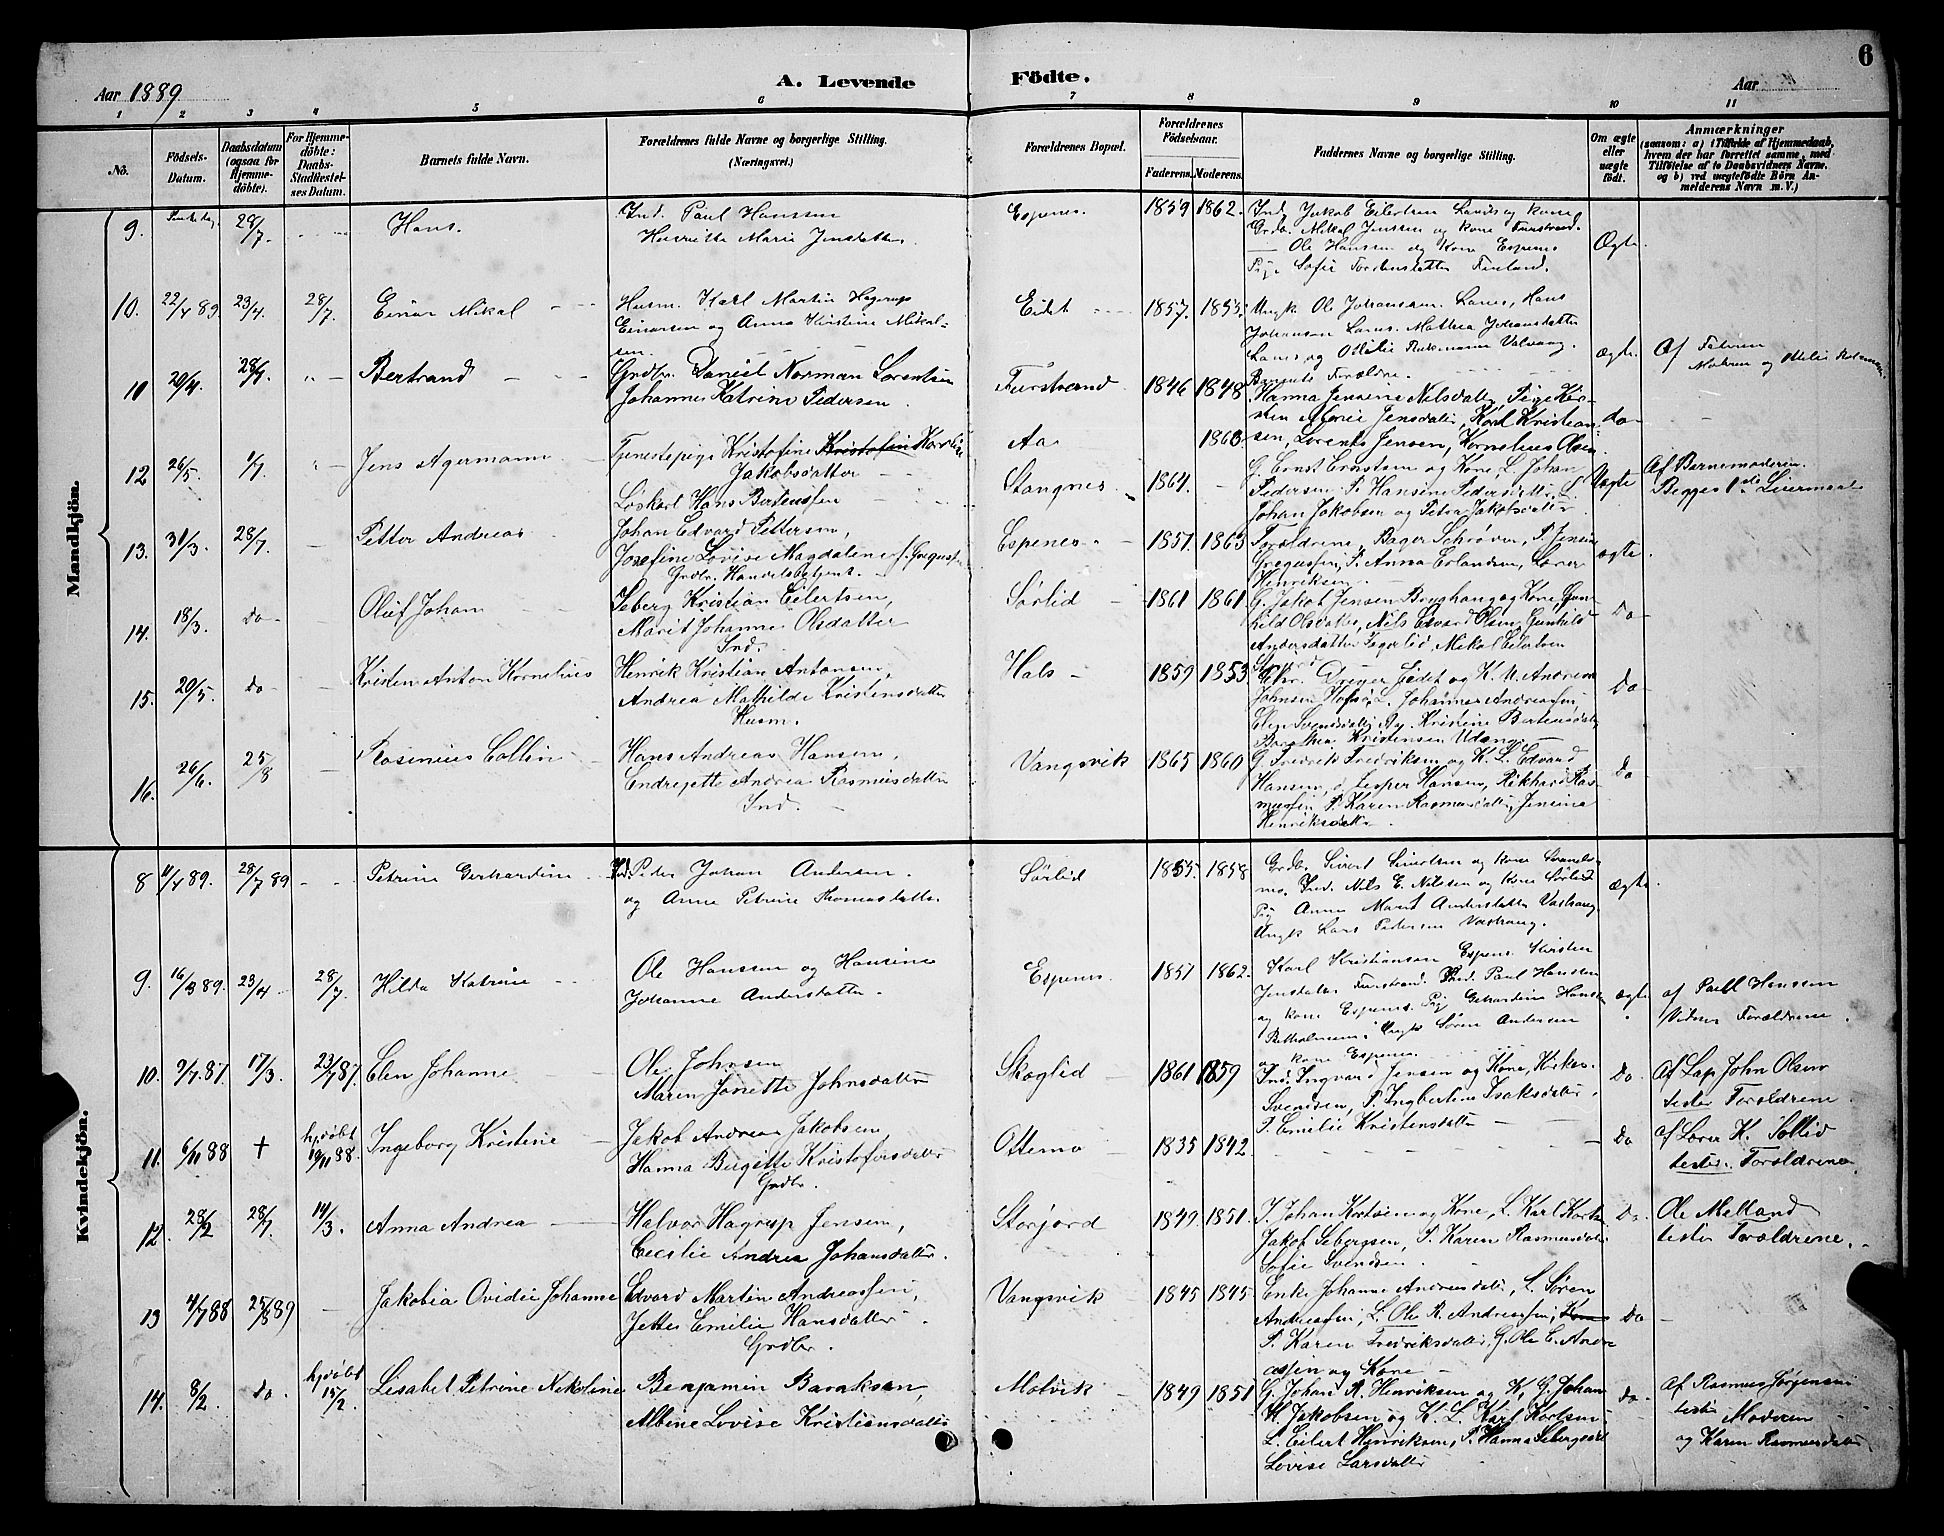 6
A. Levende Födte.
Aar 1889
Aar
1 2 3 4 5 6 7 8 9 10 11
No.
Födsels-Datum.
Daabsdatum (ogsaa for Hjemme-döbte).
For Hjemme-döbte: Daabs-Stadfæstelses Datum.
Barnets fulde Navn.
Forældrenes fulde Navne og borgerlige Stilling. (Næringsvei.)
Forældrenes Bopæl.
Forældrenes Födselsaar.
Faderens. Moderens.
Faddernes Navne og borgerlige Stilling.
Om ægte eller uægte födt.
Anmærkninger
(saasom: a) i Tilfælde af Hjemmedaab, hvem der har forrettet samme, med Tilföielse af to Daabsvidners Navne. og b) ved uægtefödte Börn Anmelderens Navn m. V.)
Mandkjön.
9. 28/7 Hans. Ind. Paul Hanssen
Henriette Marie Jensdatter
Espenes 1859 1862. Ind. Jakob Eilertsen
Grdb. Mikal Jenssen og kone Furstrand.
Ole Hanssen og Kone Espenes
Pige Sofie Finland.
Ægte
10. 22/4 89. 23/4. 28/7. Einar Mikal Husm. Karl Martin Hagerup
Einarsen og Anna Kirstine Mikal-
sen.
Eidet 1857. 1855. Ungk. Ole Johanssen. Lanes, Hans
Johansen Lanes. Mathea Johansdatter
Lanes og Ottilie Valvaag.
Barnets Forældre.
ægte. Af Faderen
Moderen og
11 20/4. 28/7. Bertrand Grdbr. Daniel Norman Lorentsen
Johannes Katrine Pedersen.
Furstrand 1846 1848 Hanna Jensine Nilsdatter, Pige Kir-
sten Marie Jensdatter, Karl Kristian-
sen, Lorents Jensen, Kornelius Olsen
do
12 26/5. 1/7. Jens Agermann Tjenestepige Kristofine Kristofin Karoline
Jakobsdatter
Løskarl Hans Berteussen
Aa 1863
Stangnes 1864. G. Ernst Ernstsen og Kone, L. Johan
Pedersen P. Hansine Pedersdatter, L.
Johan Jakobsen og Petra Jakobsdatter
Uægte Af Barnemoderen.
Begges 1ste Leiermaal
13. 31/3. 28/7. Petter Andreas Johan Edvard Pettersen,
Josefine Lovise Magdalene f. Gregusen
Grdbr. Handelsbetjent.
Espenes 1857. 1863 Forældrene, Bager Schrøder, P. Jensine
Gregussen, P. Anna Erlandsen, Lærer
Henriksen.
ægte
14. 18/3. Do Oluf Johan Seberg Kristian Eilertsen,
Marit Johanne Olsdatter
Ind.
Sørlid 1861 1861 G. Jakob Jensen og Kone, Gun-
hild Olsdatter, Nils Edvard Olsen, Gunhild
Andersdatter, Mikal Eilertsen
Do
15. 20/5. Do Kristen Anton Kornelius Henrik Kristian Antonsen,
Andrea Mathilde Kristensdatter
Husm.
Hals 1859 1853 Dreyer Eidet og K. U. Andreas
Johnsen Hofsø, L. Johannes Andreassen
Elen Svendsdatter Aa. Kristine Berteusdatter,
Kristensen
Do
16. 26/6. 25/8 Rasmus Collin Hans Andreas Hansen,
Endregette Andrea Rasmusdatter
Ind.
Vangsvik 1865 1860 G. Fredrik Fredriksen og K. L. Edvard
Hansen, Jesper Hansen, Rikhard Ras-
mussen P. Karen Rasmusdatter, Jensine
Henriksdatter
Do
Kvindekjön.
8 11/4 89. 28/7 89 Petrine Gerhardine Ind. Peder Johan Andersen
og Anne Petrine Thomasdatter
Sørlid 1855. 1858 Grdb. Sivert Sivertsen og kone
Ind. Nils E. Nilssen og kone Sørlid
Pig Anne Marit Andersdatter
Ungk Lars Pedersen
ægte
9. 16/3 89. 23/4 28/7. Hilda Katrine Ole Hanssen og Hansine
Johanne Andersdatter
Espenes. 1857 1862. Karl Kristiansen Espenes Kirsten
Jensdatter Furstrand. Ind. Paul Hanssen
og kone Espenes. Pig Gerhardine Hansen
Ungk Søren Andersen
og kone Espenes
ægte af Paul Hanssen
Vidner Forældrene.
10. 9/7. 87. 17/3. 23/7 87. Elen Johanne Ole Johnsen
Maren Jonette Johnsdatter
Skoglid 1861 1859 Ind. Ingvard Jensen og Kone,
Svendsen, P. Ingbertine Isaksdatter,
P. Emilie Kristensdatter
Do Af Lap John Olsen
testes Forældrene.
11. 6/11 88 + hjdøbt
19/11 88. Ingeborg Kristine Jakob Andreas Jakobsen
Hanna Birgitte Kristofersdatter
Grdbr.
Ottemo 1835 1842 Do af Lærer K. Sollid
testes Forældrene
12. 28/2 28/7. 14/3. Anna Andrea Halvor Hagerup Jensen,
Cecilie Andrea Johansdatter.
Storjord 1849 1851. I. Johan Kortsen og Kone, L. Karl Kortsen
Jakob Sebergsen, P. Karen Rasmusdatter
Sofie Svendsen.
Do. Ole Melland
testes Forældrene.
13 4/7 88 25/8 89 Jakobia Ovidie Johanne Edvard Martin Andreassen,
Jette Emelie Hansdatter.
Grdbr.
Vangsvik 1845 1845 Enke Johanne Andreasdatter, L. Søren
Andreassen, L. Ole R. Andreassen, Kone
P. Karen Fredriksdatter, G. Ole E. Andre-
assen og Kone
Do
14. 8/2. do. hjdøbt
15/2. Lisabet Petrine Nikoline Benjamin Baraksen,
Albine Lovise Kristiansdatter
Molvik 1849 1851 G. Johan R. Henriksen og K., G. Johan
H. Jakobsen og K. L. Karl Kortsen
L. Eilert Henriksen, P. Hanna Sebergsdatter
Lovise Larsdatter
do Af Rasmus Jørgensen
testes Moderen
og Karen Rasmusdatter